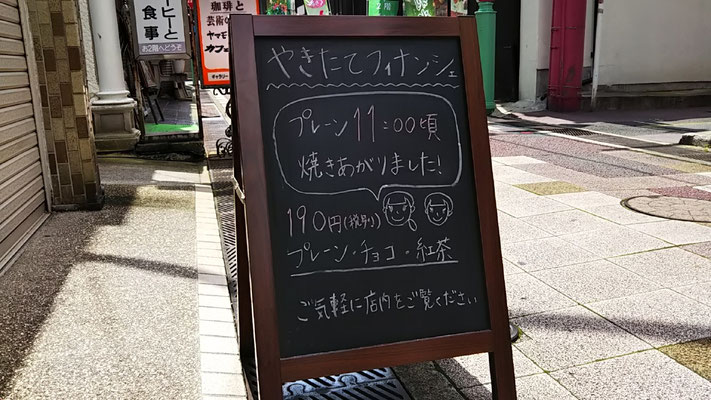 ーヒーと
食事
お2階へどうぞ
珈琲と
芸術の
ヤマモ
カフェ
ギャラリー
やきたてフィナンシェ
プレーン 11:00頃
焼きあがりました!
190円(税別)
プレーン・チョコ・紅茶
ご気軽に店内をご覧ください